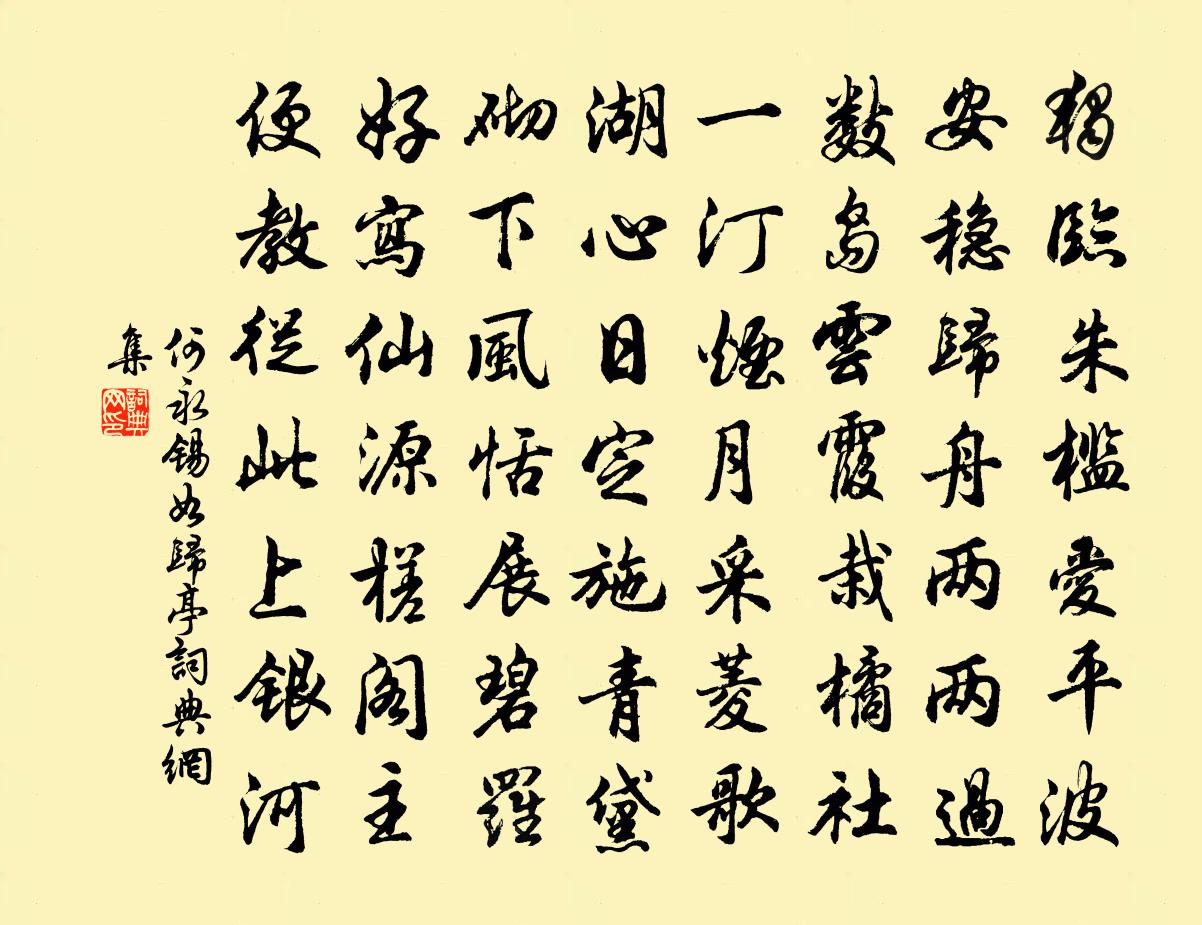 獨臨朱檻愛平波
安穩歸舟兩兩過
數島雲霞栽橘社
一汀煙月采菱歌
湖心日定施青黛
砌下風恬展碧羅
好寫仙源槎閣主
便教從此上銀河
何永錫如歸亭詞典網
集
詞典
网印